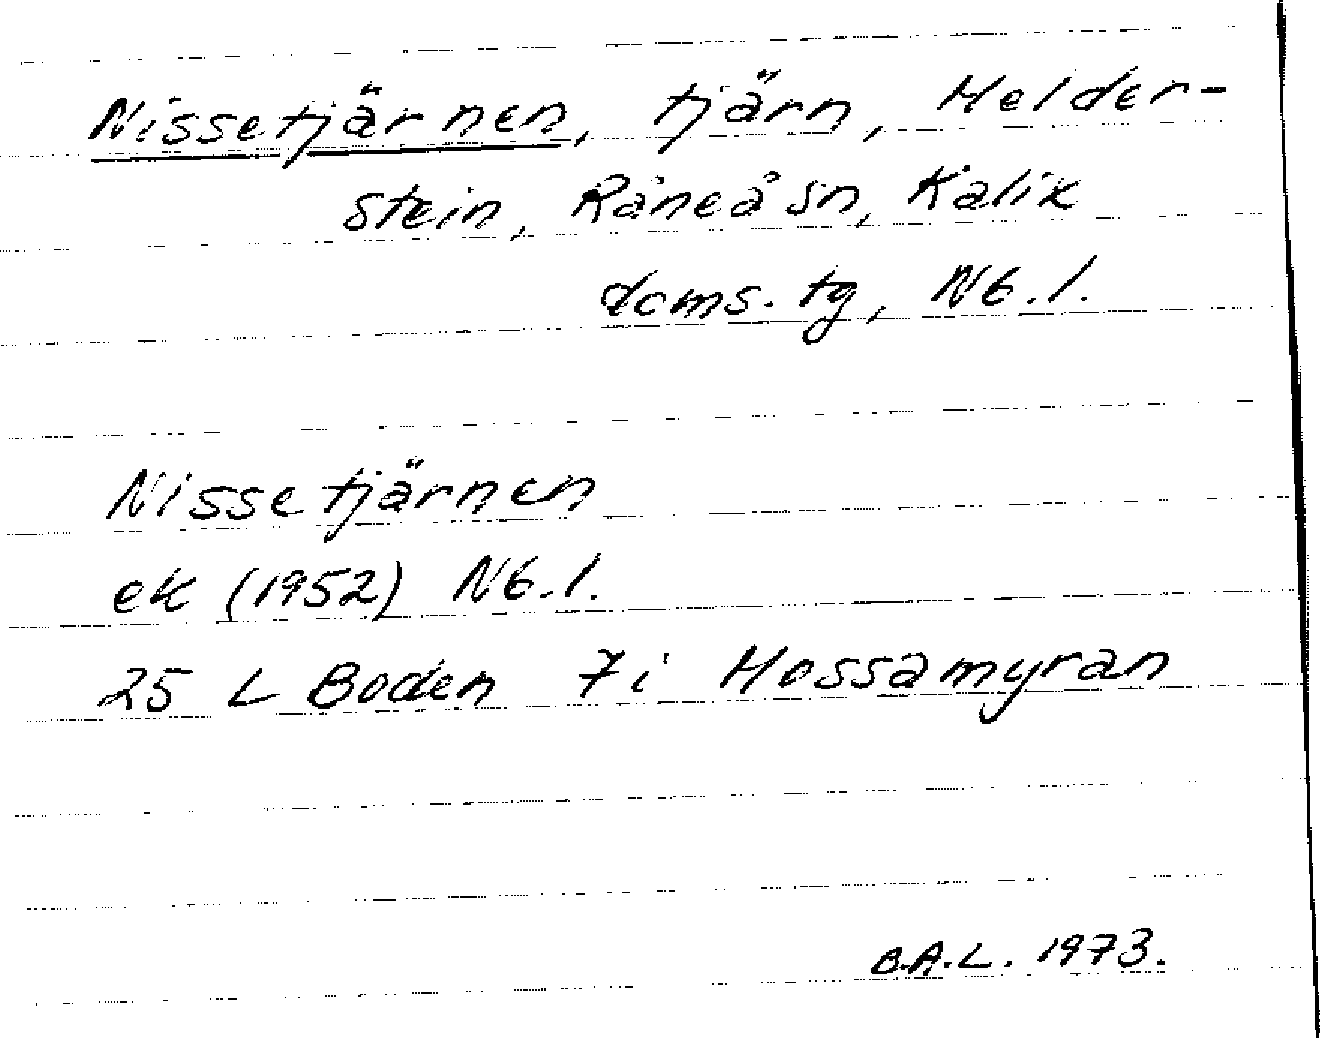 Nissetjärnen, tjärn, Melder-
stein, Råneå sn, Kalix
doms. tg, Nb. l.
Nissetjärnen
ek (1952) Nb. l.
25 L Boden 7i Mossamyran
B.A.L. 1973.